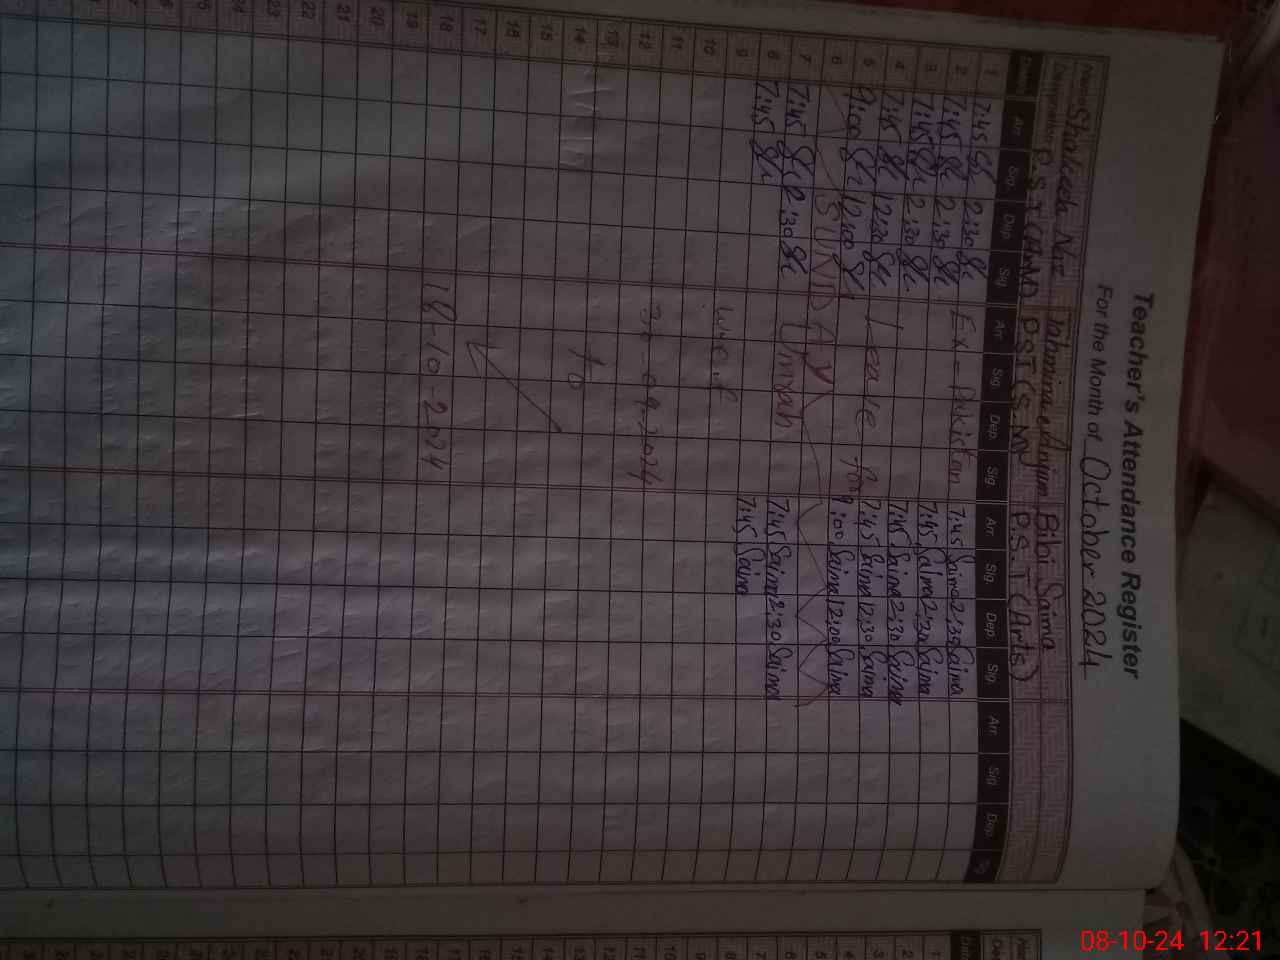 Teacher's Attendance Register
For the Month of October 2024
Name Tahmina Anjum Bibi Saima
Designation P.S.T P.S.T P.S.T (Arts)
Date Arr. Sig. Dep. Sig. Arr. Sig. Dep. Sig. Arr. Sig. Dep. Sig. Arr. Sig. Dep. Sig.
1 7:45 2:30 7:45 Saima 2:30 Saima
2 7:45 2:30 Ex-Pakistan 7:45 Saima 2:30 Saima
3 7:45 2:30 7:45 Saima 2:30 Saima
4 7:45 12:30 7:45 Saima 12:30 Saima
5 9:00 12:00 Leave for 9:00 Saima 12:00 Saima
6 SUNDAY
7 7:45 2:30 Umrah 7:45 Saima 2:30 Saima
8 7:45 7:45 Saima
9
10 w.e.f
11
12 30-09-2024
13
14 to
15
16
17
18
19 18-10-2024
20
21
22
23
24
08-10-24 12:21